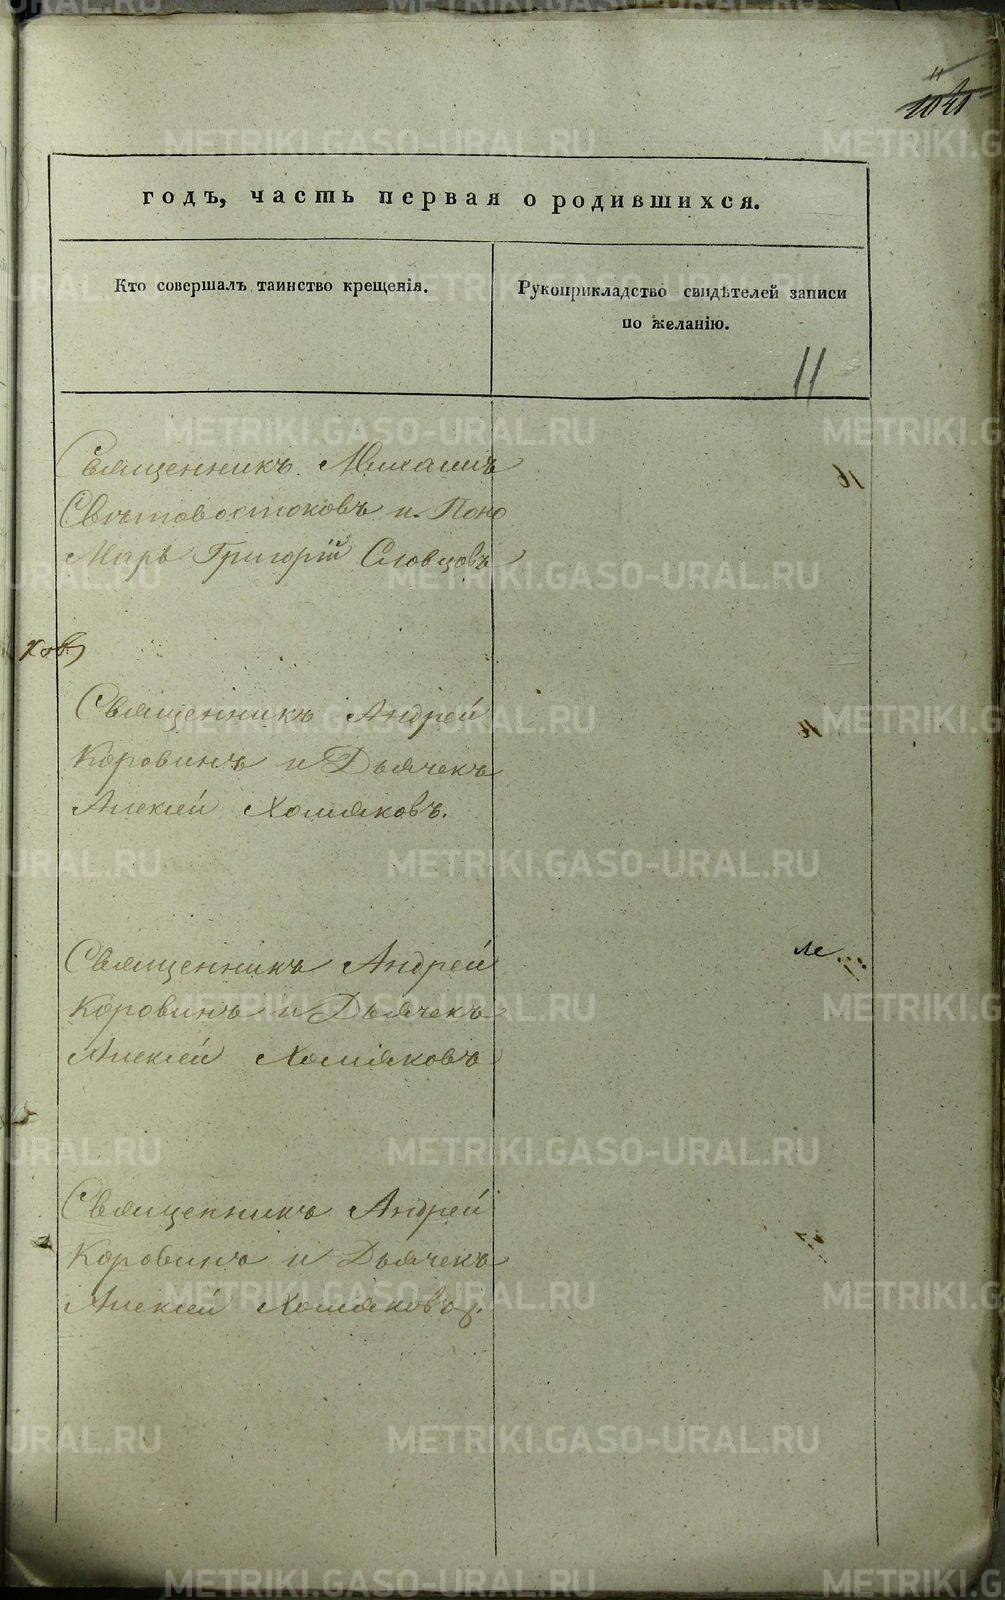 11
1041
годъ, часть первая о родившихся.
Кто совершалъ таинство крещенія.
Рукоприкладство свидѣтелей записи
по желанію.
11
Священникъ Михаилъ
Свѣтовостоковъ и Поно
Марь Григорій Словцовъ
16
Священникъ Андрей
Коровинъ и Дьячекъ
Алексѣй Хомяковъ.
Священникъ Андрей
Коровинъ и Дьячекъ
Алексѣй Хомяковъ
Священникъ Андрей
Коровинъ и Дьячекъ
Алексѣй Хомяковъ.
METRIKI.GASO-URAL.RU